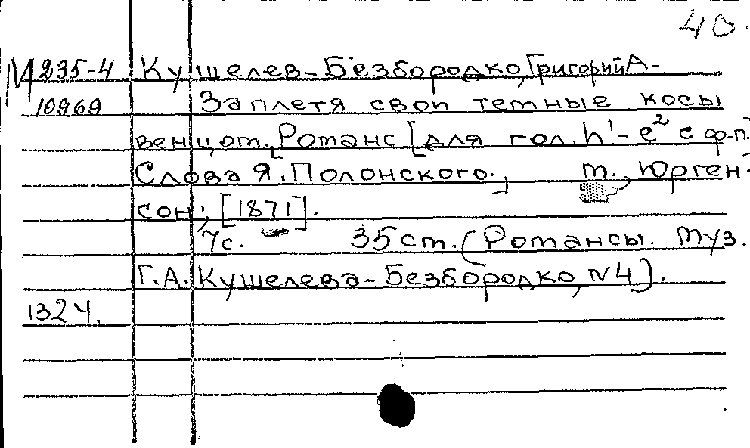 40.
М 235-4 Кушелев-Безбородко, Григорий А-
10969 Заплетя свои темные косы
венцом. Романс [для гол. h'-e² с ф-п.
Слова Я. Полонского., м., Юрген-
сон, [1871].
7с. 35 cm. (Романсы муз.
Г.А. Кушелева-Безбородко, №4).
1324.